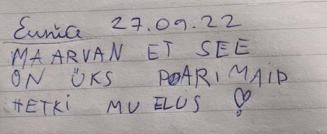 Eunice 27.09.22
MA ARVAN ET SEE
ON ÜKS PARIMAID
HETKI MU ELUS